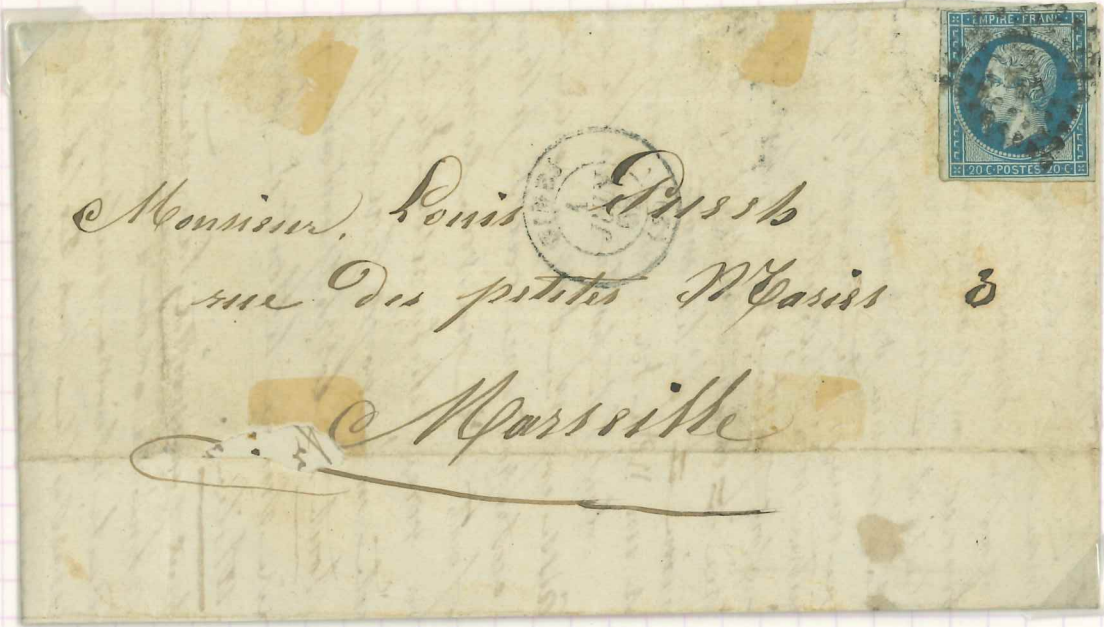 EMPIRE FRANC
20 C·POSTES·20 C
Monsieur, Louis
rue des petites Maries 3
Marseille